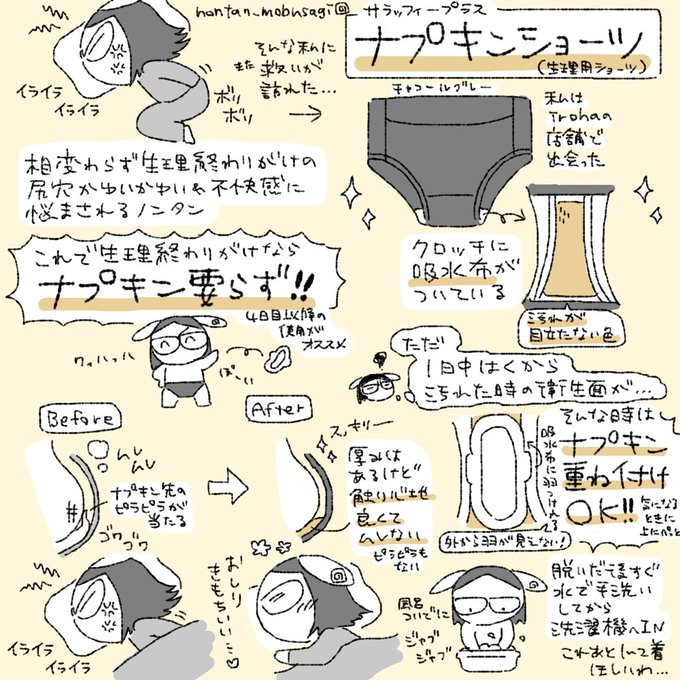 nontan_mobusagi@
サラッフィープラス
ナプキンショーツ
(生理用ショーツ)
そんな私に
また 救いが
訪れた…
イライラ
イライラ
ボリ
ボリ
相変わらず生理終わりがけの
尻穴かゆいかゆい&不快感に
悩まされるノンタン
チャコールグレー
私は
Trohaの
店舗で
出会った
クロッチに
吸水布が
ついている
汚れが
目立たない色
これで生理終わりがけなら
ナプキン要らず!!
4日目以降の
使用が
オススメ
ワッハッハ
ぽーい
ただ
1日中はくから
汚れた時の衛生面が…
Before
ムレ
ムレ
ナプキン先の
ピラピラが
当たる
ゴワ
ゴワ
After
スッキリー
厚みは
あるけど
触り心地
良くて
ムレない
ピラピラも
ない
吸水布に羽つけれる
外から羽が見えない!
そんな時は
ナプキン
重ね付け
OK!!
気になる
ときに
上にペッと
イライラ
イライラ
おしり
きもちいい…
風呂
ついでに
ジャブ
ジャブ
脱いだ後すぐ
水で手洗い
してから
洗濯機へIN
これあと1,2着
ほしいわ…